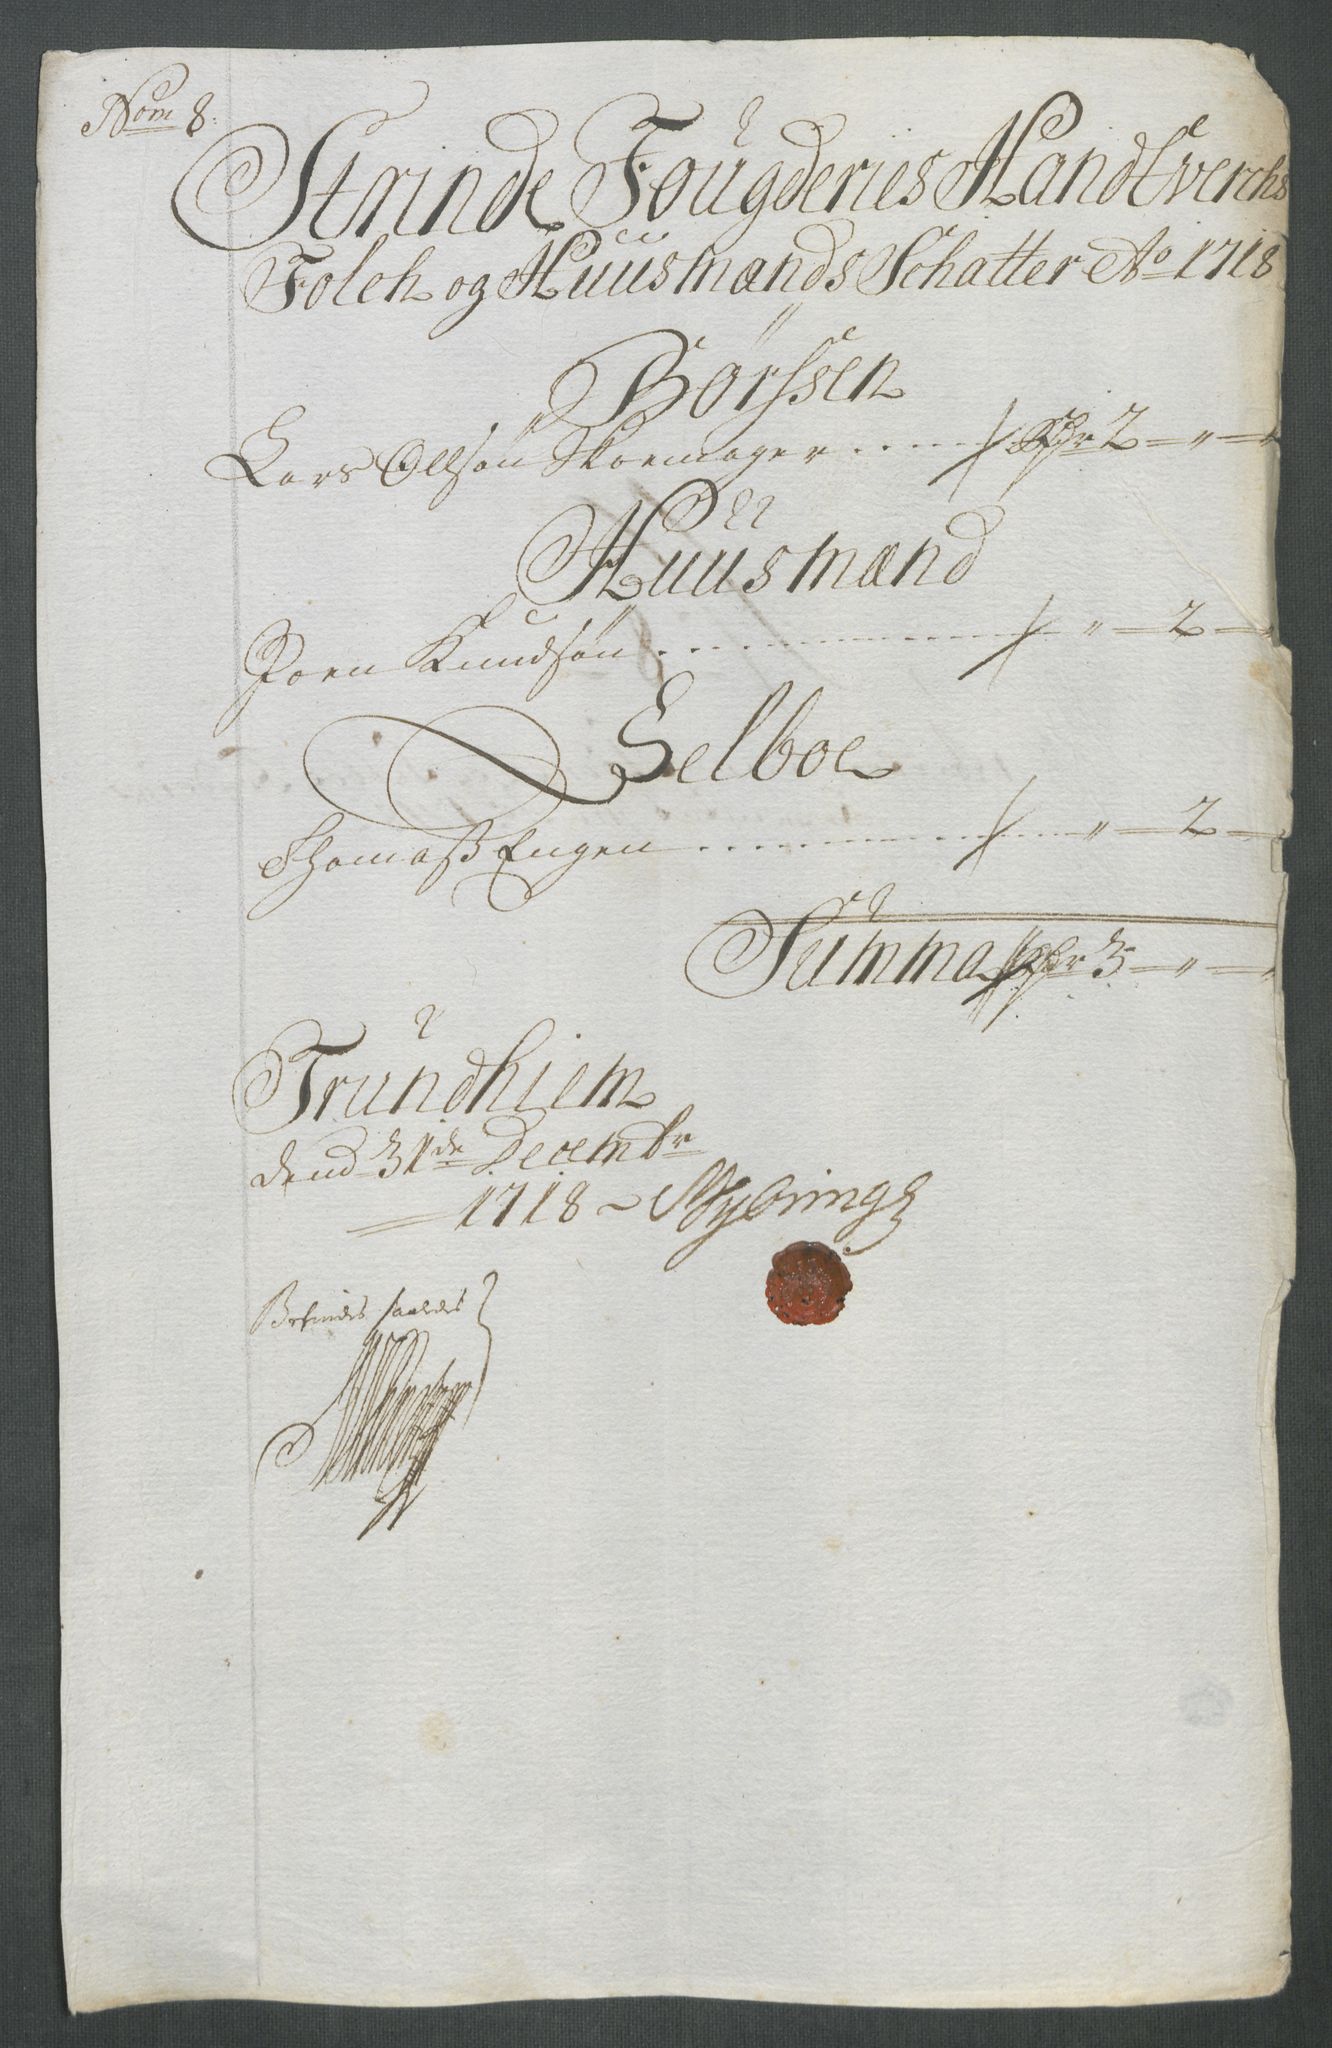 Nom 8.
Strinde Fougderies Handtverchs
Folch og Huusmænds Schatter Ao 1718
Börssen
Lars Ollsøn Skoemager .... Rdr 2 — " —
Huusmænd
Joen Knudsøn ........ " — 2 —
Selboe
Thomas Engen ........ " — 2 —
Summa Rdr 3 — " —
Trundhiem
dend 31de Decembr
1718 ~
Befindes saaledes